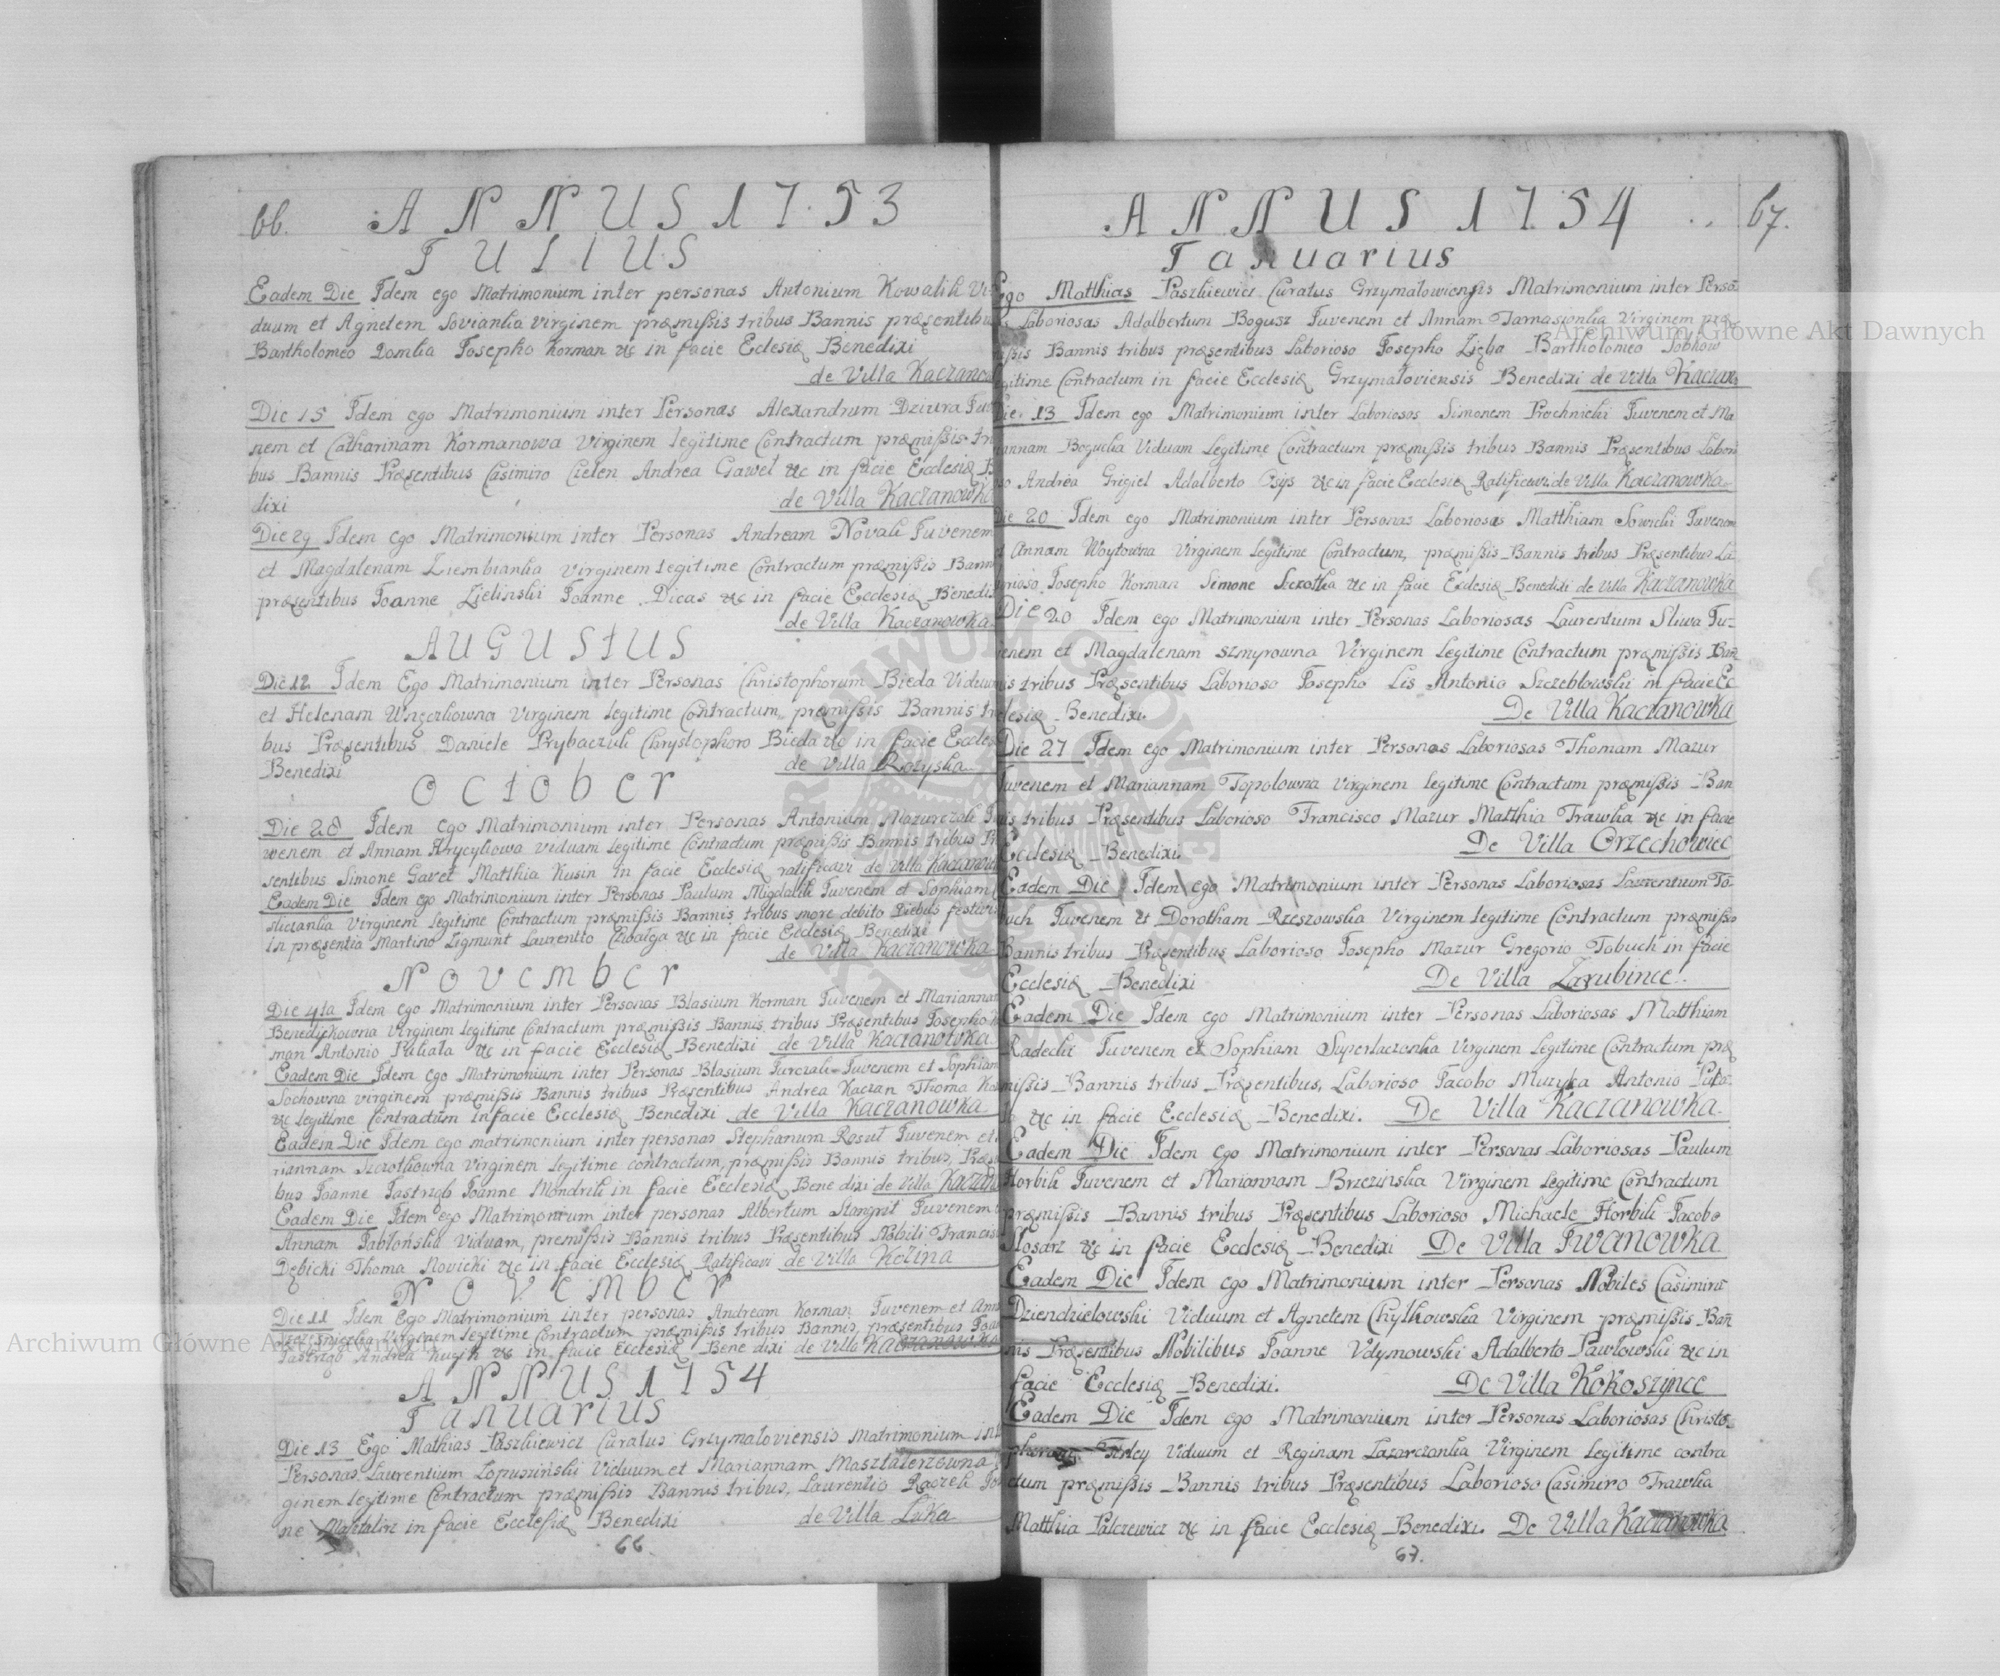 66. ANNUS 1753
JULIUS
Eadem Die Idem ego Matrimonium inter personas Antonium Kowalik Vi
duum et Agnetem Soviankia virginem præmissis tribus Bannis præsentibus
Bartholomeo Domkia Josepho Korman &c in facie Eclesiæ Benedixi
de Villa Kaczanow
Die 15 Idem ego Matrimonium inter Personas Alexandrum Dziura Juve
nem et Catharinam Kormanowa Virginem legitime Contractum præmissis tri
bus Bannis Præsentibus Casimiro Cielen Andrea Gaweł &c in facie Ecclesiæ B
dixi
de Villa Kaczanowka
Die 29 Idem ego Matrimonium inter Personas Andream Novak Juvenem
et Magdalenam Ziembianka virginem legitime Contractum præmissis Bann
præsentibus Joanne Zielinski Joanne Dicas &c in facie Ecclesiæ Benedixi
de Villa Kaczanowka
AUGUSTUS
Die 12 Idem Ego Matrimonium inter Personas Christophorum Bieda Viduum
et Helenam Virginem legitime Contractum præmissis Bannis tri
bus Præsentibus Daniele Prybaczuk Chrystophoro Bieda &c in facie Eccles
Benedixi
de Villa Rozyska
October
Die 28 Idem ego Matrimonium inter Personas Antonium Mazurczak Ju
wenem et Annam Hrycykowa viduam legitime Contractum præmissis Bannis tribus Præ
sentibus Simone Gaveł Matthia Kusin in facie Ecclesiæ ratificavi de Villa Kaczanow
Eadem Die Idem ego Matrimonium inter Personas Paulum Migdałek Juvenem et Sophiam
Virginem legitime Contractum præmissis Bannis tribus more debito Diebus festivis
in præsentia Martino Zigmunt Laurentio &c in facie Ecclesiæ Benedixi
de Villa Kaczanowka
November
Die 4ta Idem ego Matrimonium inter Personas Blasium Korman Juvenem et Mariannam
Benedykowna Virginem legitime Contractum præmissis Bannis tribus Præsentibus Josepho
man Antonio Pukała &c in facie Ecclesiæ Benedixi de Villa Kaczanowka
Eadem Die Idem ego Matrimonium inter Personas Blasium Jurczak Juvenem et Sophiam
Sochowna virginem præmissis Bannis tribus Præsentibus Andrea Kaczan Thoma
&c legitime Contractum in facie Ecclesiæ Benedixi de Villa Kaczanowka
Eadem Die Idem ego matrimonium inter personas Stephanum Rosuł Juvenem et
riannam Szczotkowna virginem legitime contractum, præmissis Bannis tribus, Præsen
bus Joanne Jastrząb Joanne Mondrik in facie Ecclesiæ Benedixi de Villa Kaczan
Eadem Die Idem ego Matrimonium inter personas Albertum Stangret Juvenem
Annam Jabłońska Viduam, premissis Bannis tribus Præsentibus Nobili Francis
Dębicki Thoma Novicki &c in facie Ecclesiæ Ratificavi de Villa Kolina
NOVEMBER
Die 11 Idem Ego Matrimonium inter personas Andream Korman Juvenem et Ann
Virginem legitime Contractum præmissis tribus Bannis, præsentibus Joan
Jastrząb Andrea &c in facie Ecclesiæ Benedixi de Villa Kaczanowka
ANNUS 1754
Januarius
Die 13 Ego Mathias Paszkiewicz Curatus Grzymałoviensis Matrimonium int
Personas Laurentium Łopuszński Viduum et Mariannam Masztalerzewna
ginem legitime Contractum præmissis Bannis tribus, Laurentio Raczek Jo
ne Masztalirz in facie Ecclesiæ Benedixi
de Villa Łuka
66.
ANNUS 1754 67.
Januarius
Ego Matthias Paszkiewicz Curatus Grzymałowiensis Matrimonium inter Perso
s Laboriosas Adalbertum Bogusz Juvenem et Annam Tarnasionka Virginem præ
issis Bannis tribus præsentibus Laborioso Josepho Zięba Bartholomeo Sobkow
gitime Contractum in facie Ecclesiæ Grzymałoviensis Benedixi de Villa Kaczan
Die 13 Idem ego Matrimonium inter Laboriosos Simonem Prochnicki Juvenem et Ma
iannam Bogucka Viduam Legitime Contractum præmissis tribus Bannis Præsentibus Labori
so Andrea Grigiel Adalberto Osys &c in facie Ecclesiæ Ratificavi de Villa Kaczanowka
Die 20 Idem ego Matrimonium inter Personas Laboriosas Matthiam Sowicki Juvenem
et Annam Woytowna Virginem legitime Contractum, præmissis Bannis tribus Præsentibus La
orioso Josepho Korman Simone Szczotka &c in facie Ecclesiæ Benedixi de Villa Kaczanowka
Die 20 Idem ego Matrimonium inter Personas Laboriosas Laurentium Sliwa Ju-
venem et Magdalenam Szmyrowna Virginem Legitime Contractum præmissis Ban
nis tribus Præsentibus Laborioso Josepho Lis Antonio Szczeblowski in facie Ec
clesiæ Benedixi.
De Villa Kaczanowka
Die 27 Idem ego Matrimonium inter Personas Laboriosas Thomam Mazur
Juvenem et Mariannam Topolowna Virginem legitime Contractum præmissis Ban
nis tribus Præsentibus Laborioso Francisco Mazur Matthia Trawka &c in facie
Ecclesiæ Benedixi.
De Villa Orzechowiec
Eadem Die Idem ego Matrimonium inter Personas Laboriosas Laurentium To-
buch Juvenem et Dorotham Rzeszowska Virginem legitime Contractum præmissis
Bannis tribus Præsentibus Laborioso Josepho Mazur Gregorio Tobuch in facie
Ecclesiæ Benedixi
De Villa Zarubince.
Eadem Die Idem ego Matrimonium inter Personas Laboriosas Matthiam
Radecki Juvenem et Sophiam Superlaczonka Virginem legitime Contractum præ
missis Bannis tribus Præsentibus, Laborioso Jacobo Muzyka Antonio
&c in facie Ecclesiæ Benedixi. De Villa Kaczanowka.
Eadem Die Idem ego Matrimonium inter Personas Laboriosas Paulum
Horbik Juvenem et Mariannam Brzezińska Virginem legitime Contractum
præmissis Bannis tribus Præsentibus Laborioso Michaele Horbik Jacobo
Slosarz &c in facie Ecclesiæ Benedixi De Villa Iwanowka
Eadem Die Idem ego Matrimonium inter Personas Nobiles Casimirum
Dziendzielowski Viduum et Agnetem Chylkowska Virginem præmissis Ban
nis Præsentibus Nobilibus Joanne Vdymowski Adalberto Pawłowski &c in
facie Ecclesiæ Benedixi.
De Villa Kokoszynce
Eadem Die Idem ego Matrimonium inter Personas Laboriosas Christo-
phorum Viduum et Reginam Lazarczonka Virginem legitime contra
ctum præmissis Bannis tribus Præsentibus Laborioso Casimiro Trawka
Matthia Palczewicz &c in facie Ecclesiæ Benedixi. De Villa Kaczanowka
67.
Archiwum Główne Akt Dawnych
Archiwum Główne Akt Dawnych
ARCHIWUM GŁÓWNE AKT DAWNYCH